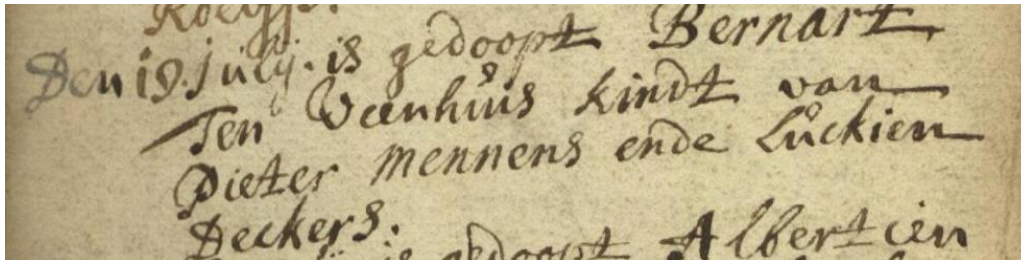 Den 19. Julij. is gedoopt Bernart
Ten Veenhuis kindt van
Pieter Mennens ende Luckien
Deckers.
is gedoopt Albertien